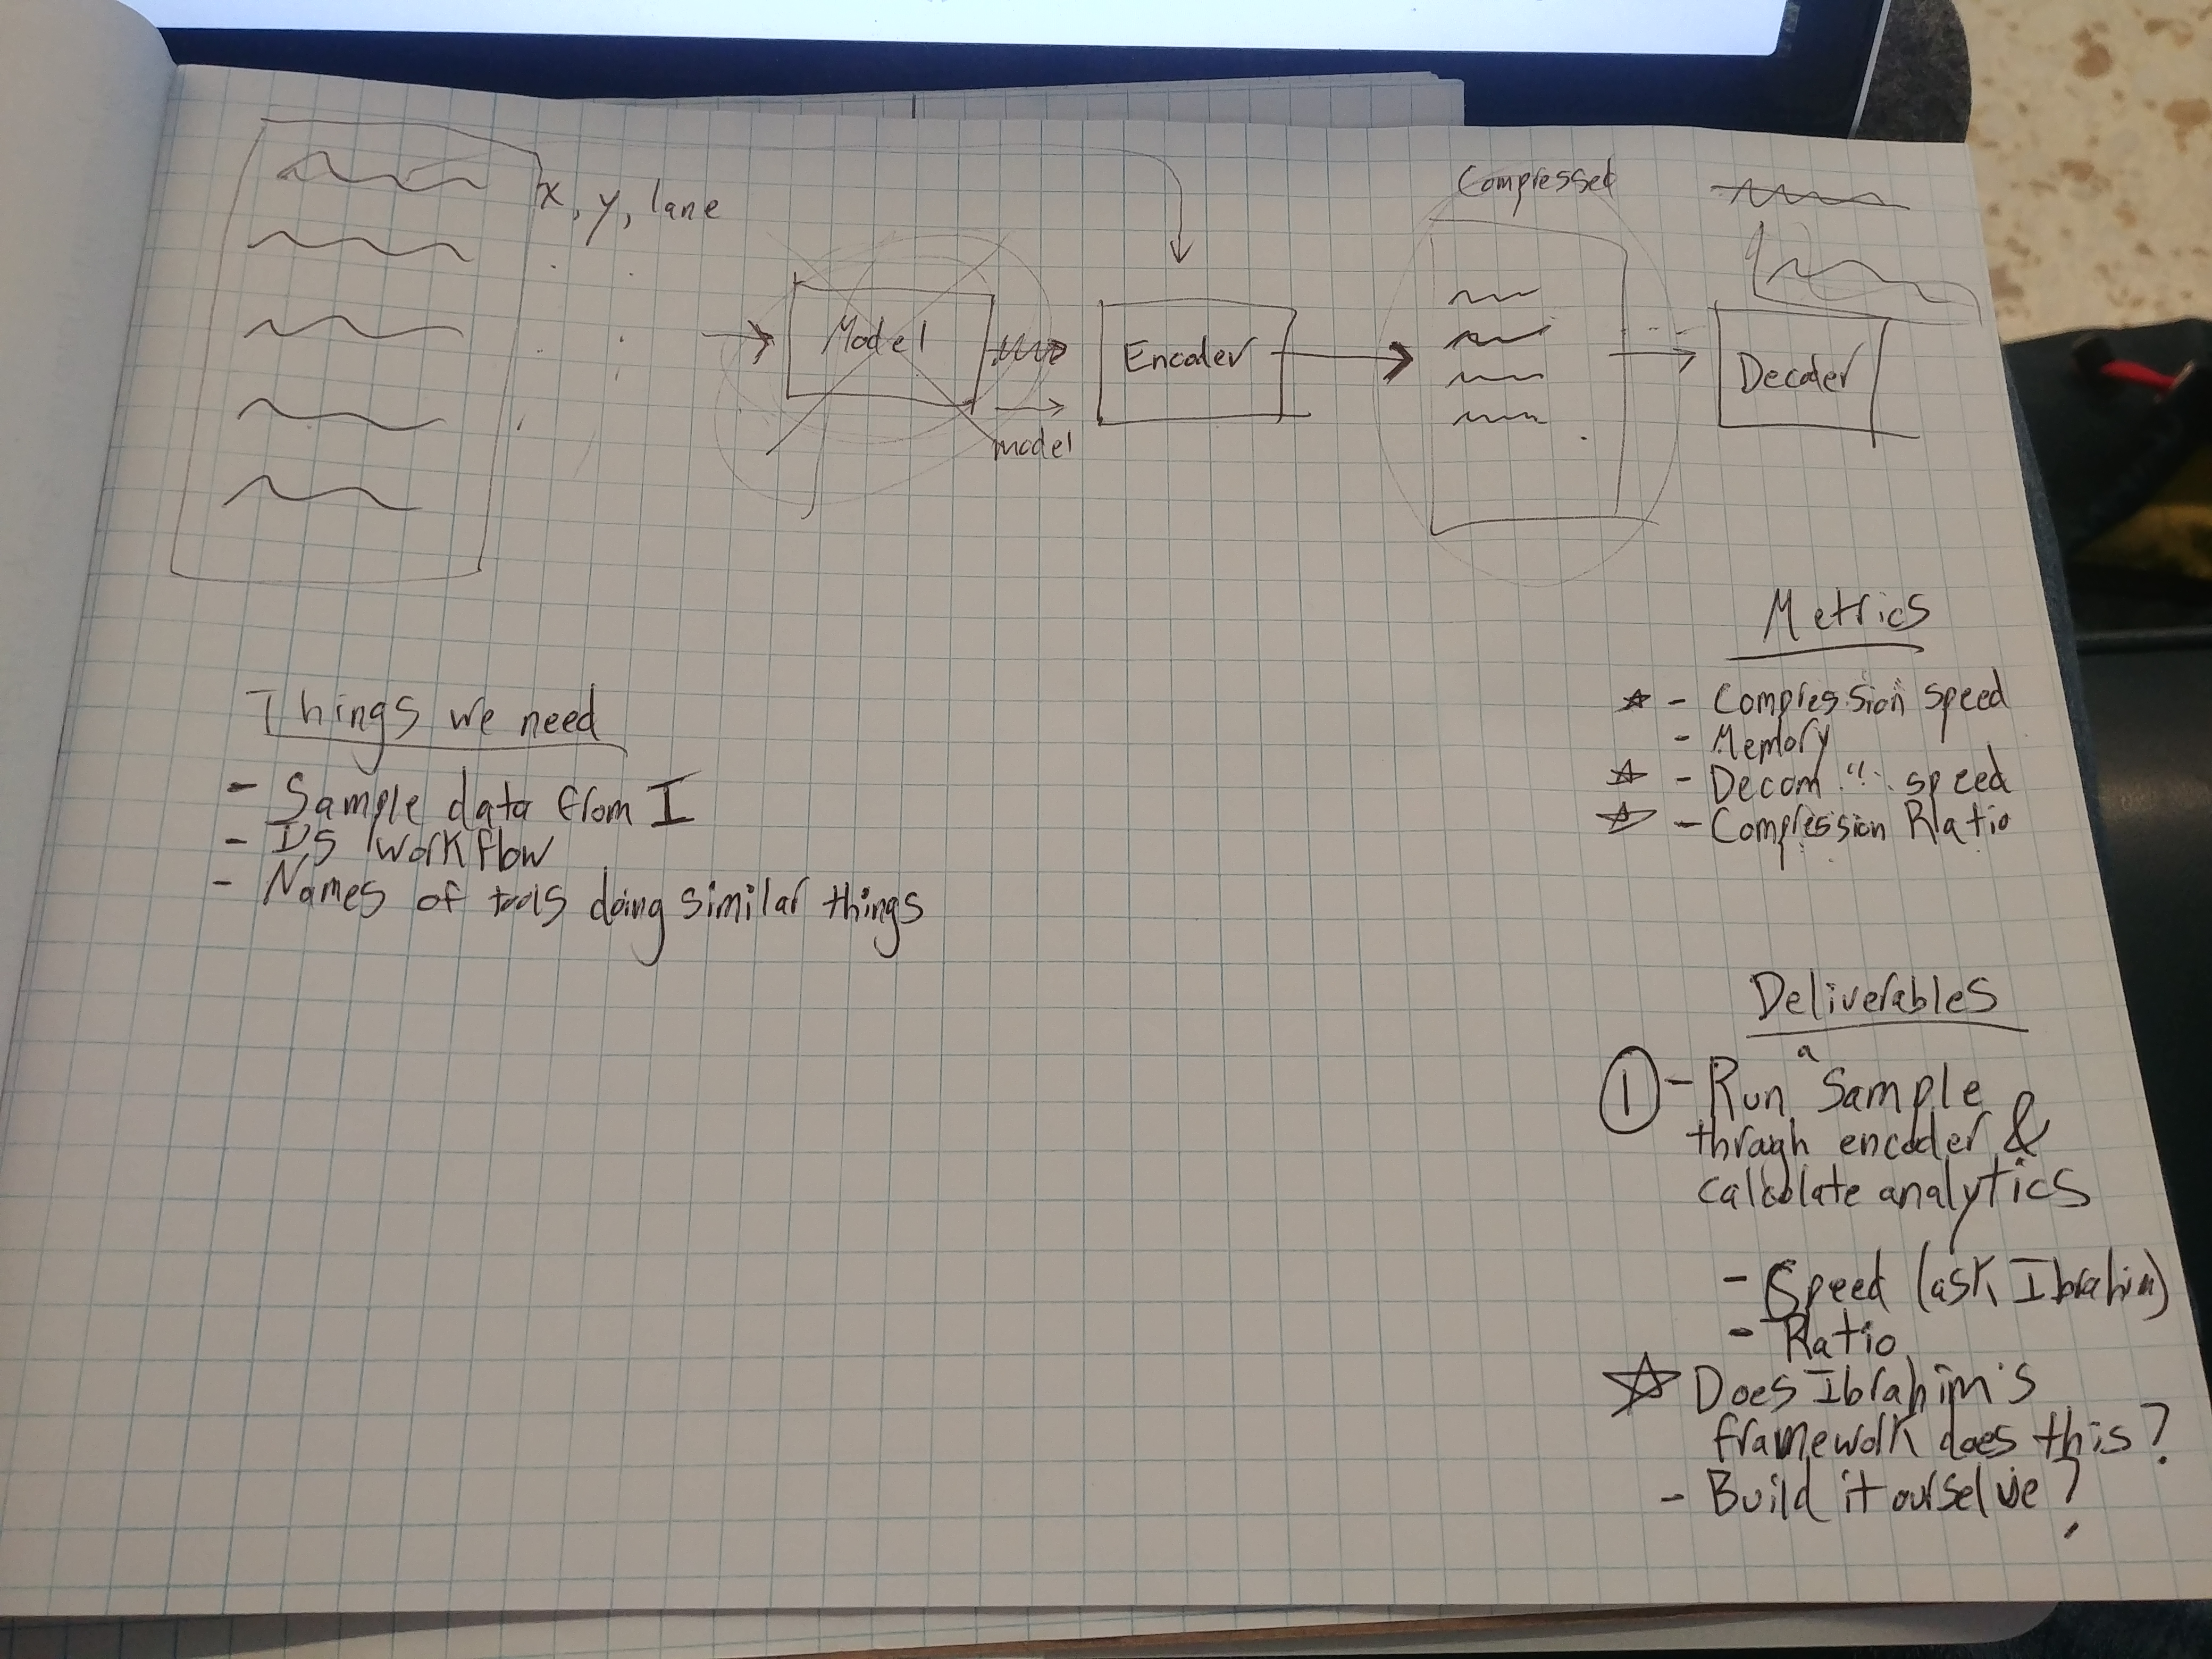 x, y, lane
Model
model
Encoder
Compressed
Decoder
Things we need
- Sample data from I
- I's workflow
- Names of tools doing similar things
Metrics
☆ - Compression speed
- Memory
☆ - Decom " speed
☆ - Compression Ratio
Deliverables
a
① - Run Sample
through encoder &
calculate analytics
- Speed (ask Ibrahim)
- Ratio
☆ Does Ibrahim's
framework does this?
- Build it ourselve?